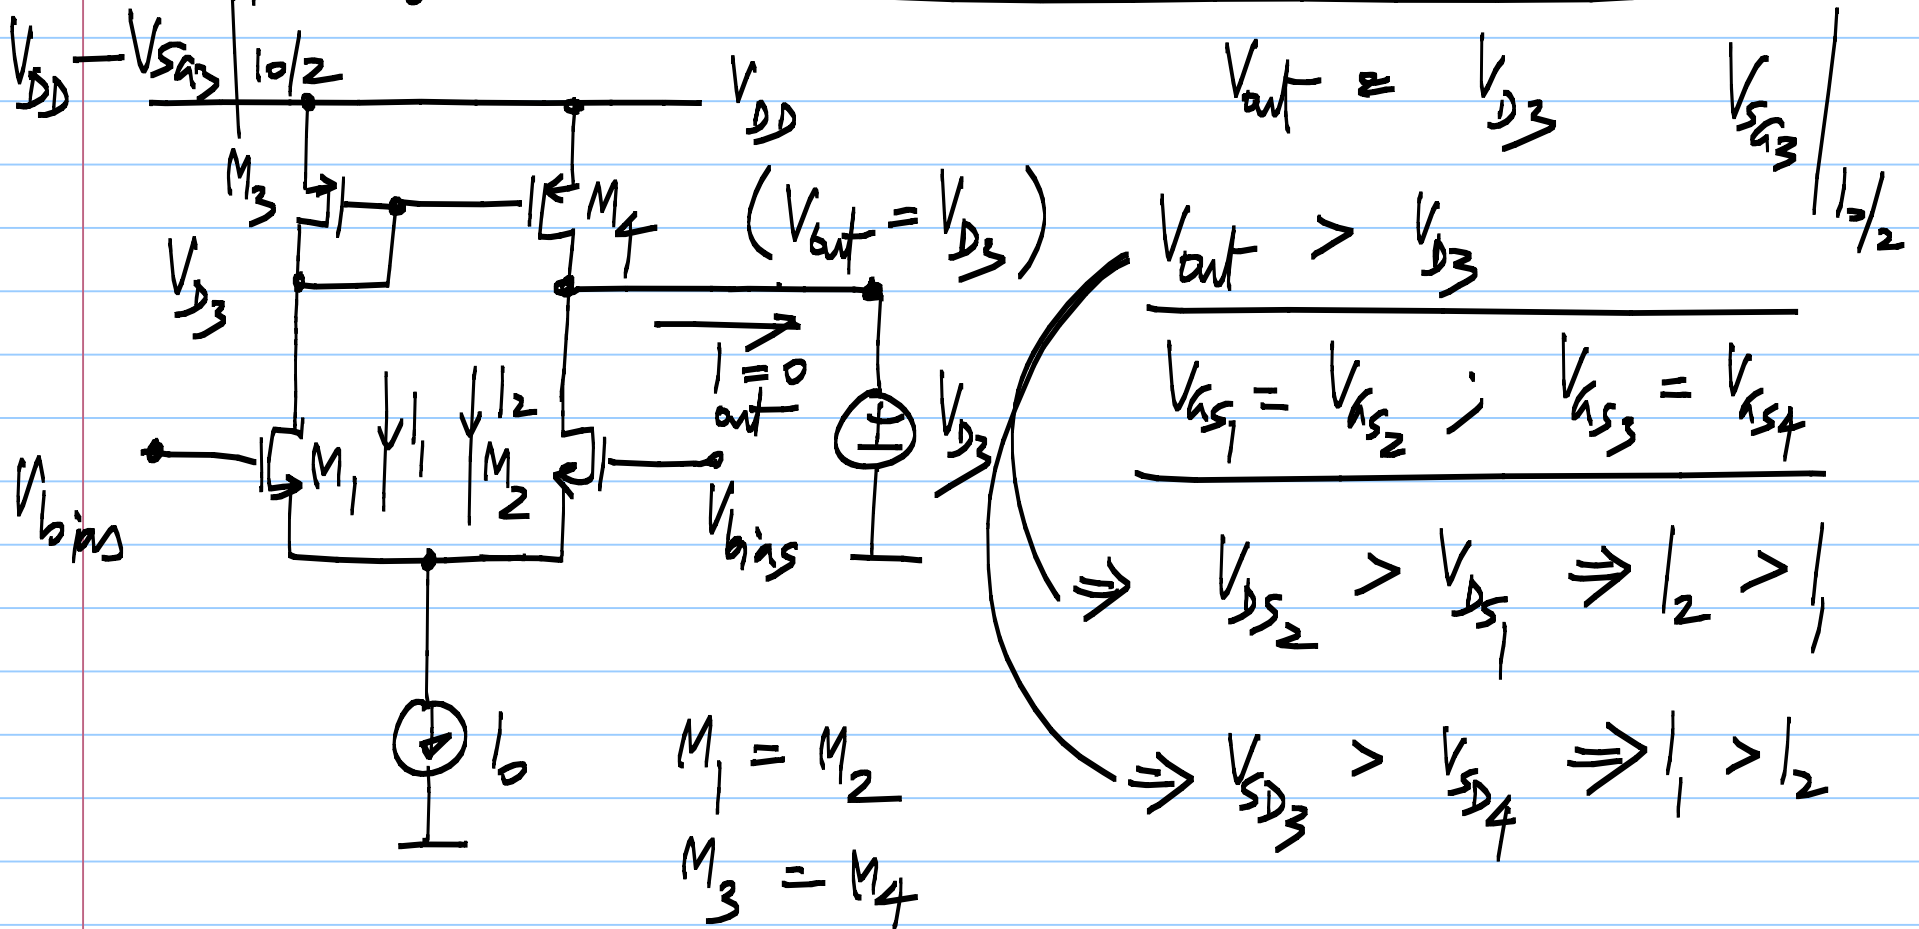 V_DD - V_SG3 | I0/2
V_DD
M3
M4
V_D3
(V_out = V_D3)
I_out = 0
V_D3
I1
I2
M1
M2
V_bias
V_bias
I0
M1 = M2
M3 = M4
V_out = V_D3
V_SG3 | I0/2
V_out > V_D3
V_GS1 = V_GS2 ; V_GS3 = V_GS4
⇒ V_DS2 > V_DS1 ⇒ I2 > I1
⇒ V_SD3 > V_SD4 ⇒ I1 > I2